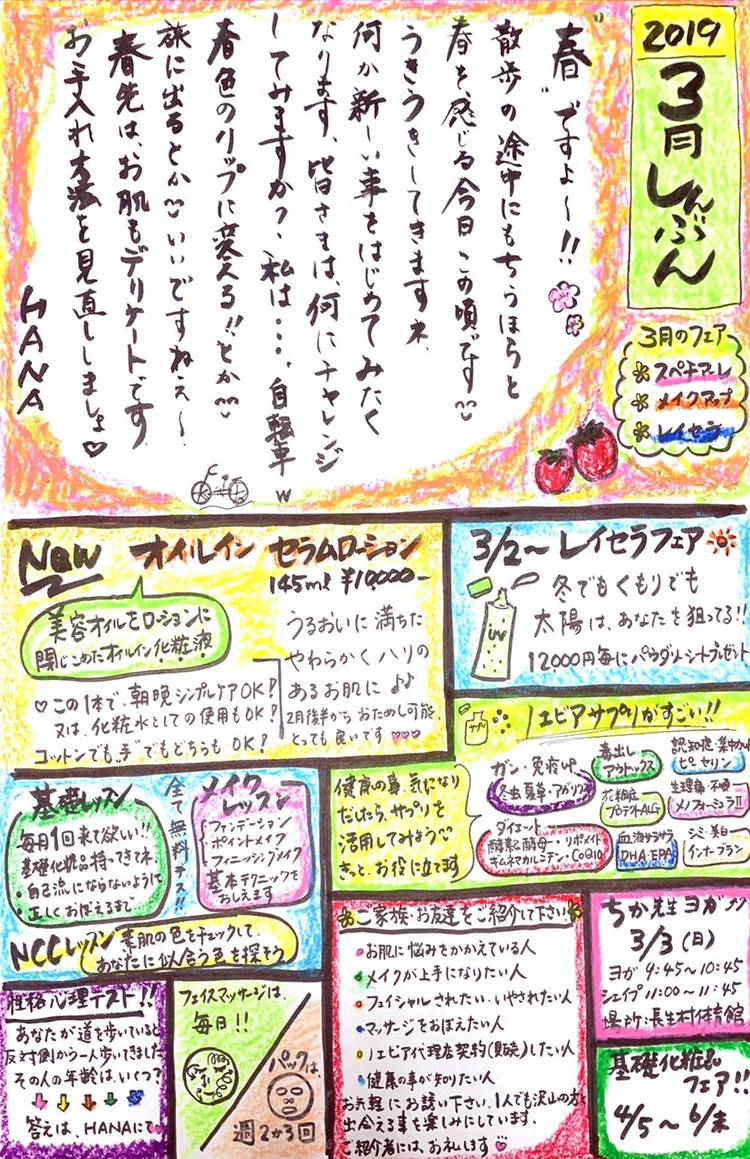 2019
3月しんぶん
"春"ですよ〜!!
散歩の途中にもちらほらと
春を感じる今日この頃です
うきうきしてきますネ、
何か新しい事をはじめてみたく
なります、皆さまは、何にチャレンジ
してみますか?私は・・・、自転車w
春色のリップに変える!!とか
旅に出るとか♡いいですねぇ〜、
春先は、お肌もデリケートです
お手入れ方法を見直ししましょ♡
HANA
3月のフェア
スペチアーレ
メイクアップ
レイセラ
New オイルイン セラムローション
145ml ¥10,000-
美容オイルをローションに
閉じこめたオイルイン化粧液
♡この1本で、朝晩シンプルケアOK!
又は、化粧水としての使用もOK!
コットンでも"手"でもどちらもOK!
うるおいに満ちた
やわらかくハリの
あるお肌に♪♪
2月後半からおためし可能、
とっても良いです♡♡♡
3/2〜レイセラフェア
冬でもくもりでも
太陽は、あなたを狙ってる!!
12000円毎にパウダーシートプレゼント
UV
ノエビアサプリがすごい!!
サプリ
健康の事、気になり
だしたら、サプリを
活用してみよう
きっと、お役に立てます
ガン・免疫up
冬虫夏草・アガリクス
毒出し
アウトックス
認知症・集中力up
ピーセリン
花粉症
プロテオALG
生理痛・不順
メノフォーシュラⅡ
ダイエット
酵素と酵母・リポメイト
ギムネマカルニチン・CoQ10
血液サラサラ
DHA・EPA
シミ・美白
インナーブラン
基礎レッスン
毎日1回来て欲しい!!
基礎化粧品持ってきてネ
・自己流にならないように
・正しくおぼえるまで
全て無料デス!!
メイク
レッスン
ファンデーション
ポイントメイク
フィニッシングメイク
基本テクニックを
おしえます
NCCレッスン 素肌の色をチェックして、
あなたに似合う色を探そう
性格心理テスト!!
あなたが道を歩いていると
反対側から一人歩いてきました
その人の年齢は、いくつ?
答えは、HANAにて♡
フェイスマッサージは、
毎日!!
パックは、
週2か3回
ご家族・お友達をご紹介して下さい
お肌に悩みをかかえている人
メイクが上手になりたい人
フェイシャルされたい・いやされたい人
マッサージをおぼえたい人
ノエビア代理店契約(販売)したい人
健康の事が知りたい人
お気軽にお誘い下さい、1人でも沢山の方と
出会える事を楽しみにしています、
ご紹介者には、お礼します♡
ちか先生ヨガ
3/3(日)
ヨガ 9:45〜10:45
シェイプ 11:00〜11:45
場所:長生村体育館
基礎化粧品
フェア!!
4/5〜6/末